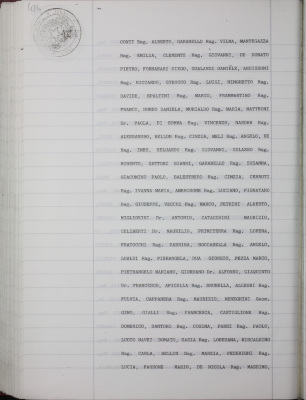 CONTI Rag. ALBERTO, GARANELLO Rag. VILMA, MANTEGAZZA
Rag. EMILIA, CLEMENTE Rag. GIOVANNI, DE DONATO
PIETRO, FORNASARI DIEGO, GUALANDI DANIELE,
Rag. RICCARDO, Rag. LUIGI, MINGHETTO Rag.
DAVIDE, SPALTINI Rag. MARCO, FRAMMARTINO Rag.
FRANCO, ROMEO DANIELA, MORIALDO Rag. MARIA, MATTEONI
Dr. PAOLA, DI SOMMA Rag. VINCENZO, Rag.
ALESSANDRO, BELLON Rag. CINZIA, MELI Rag. ANGELO, DE
Rag. INES, VELARDO Rag. GIOVANNI, ORLANDO Rag.
ROBERTO, SARTORI GIANNI, GARANELLO Rag. SUSANNA,
GIACOMINO PAOLO, BALESTRERO Rag. CINZIA, CERRUTI
Rag. IVANNA MARIA, Rag. LUCIANO, PIGNATARO
Rag. GIUSEPPE, VECCHI Rag. MARCO, ALBERTO,
MIGLIORINI Dr. ANTONIO, MAURIZIO,
Dr. MAURILIO, PRINCITERRA Rag. LORENA,
Rag. SABRINA, BOCCARELLA Rag. ANGELO,
Rag. PIERANGELA, DUA GIORGIO, PEZZA MARCO,
PIETRANGELO MARIANO, GIORDANO Dr. ALFONSO, GIACINTO
Dr. FRANCESCO, APICELLA Rag. BRUNELLA, ALLEGRI Rag.
FULVIA, CAPPANERA Rag. MAURIZIO, MENEGHINI Geom.
GINO, GIALLI Rag. FRANCESCA, CASTIGLIONE Rag.
DOMENICO, SANTORO Rag. COSIMA, PANNI Rag. PAOLO,
DONATO, Rag. LOREDANA,
Rag. CARLA, BELLON Rag. MARZIA, FEDERIGHI Rag.
LUCIA, MARIO, DE NICOLA Rag. MASSIMO,